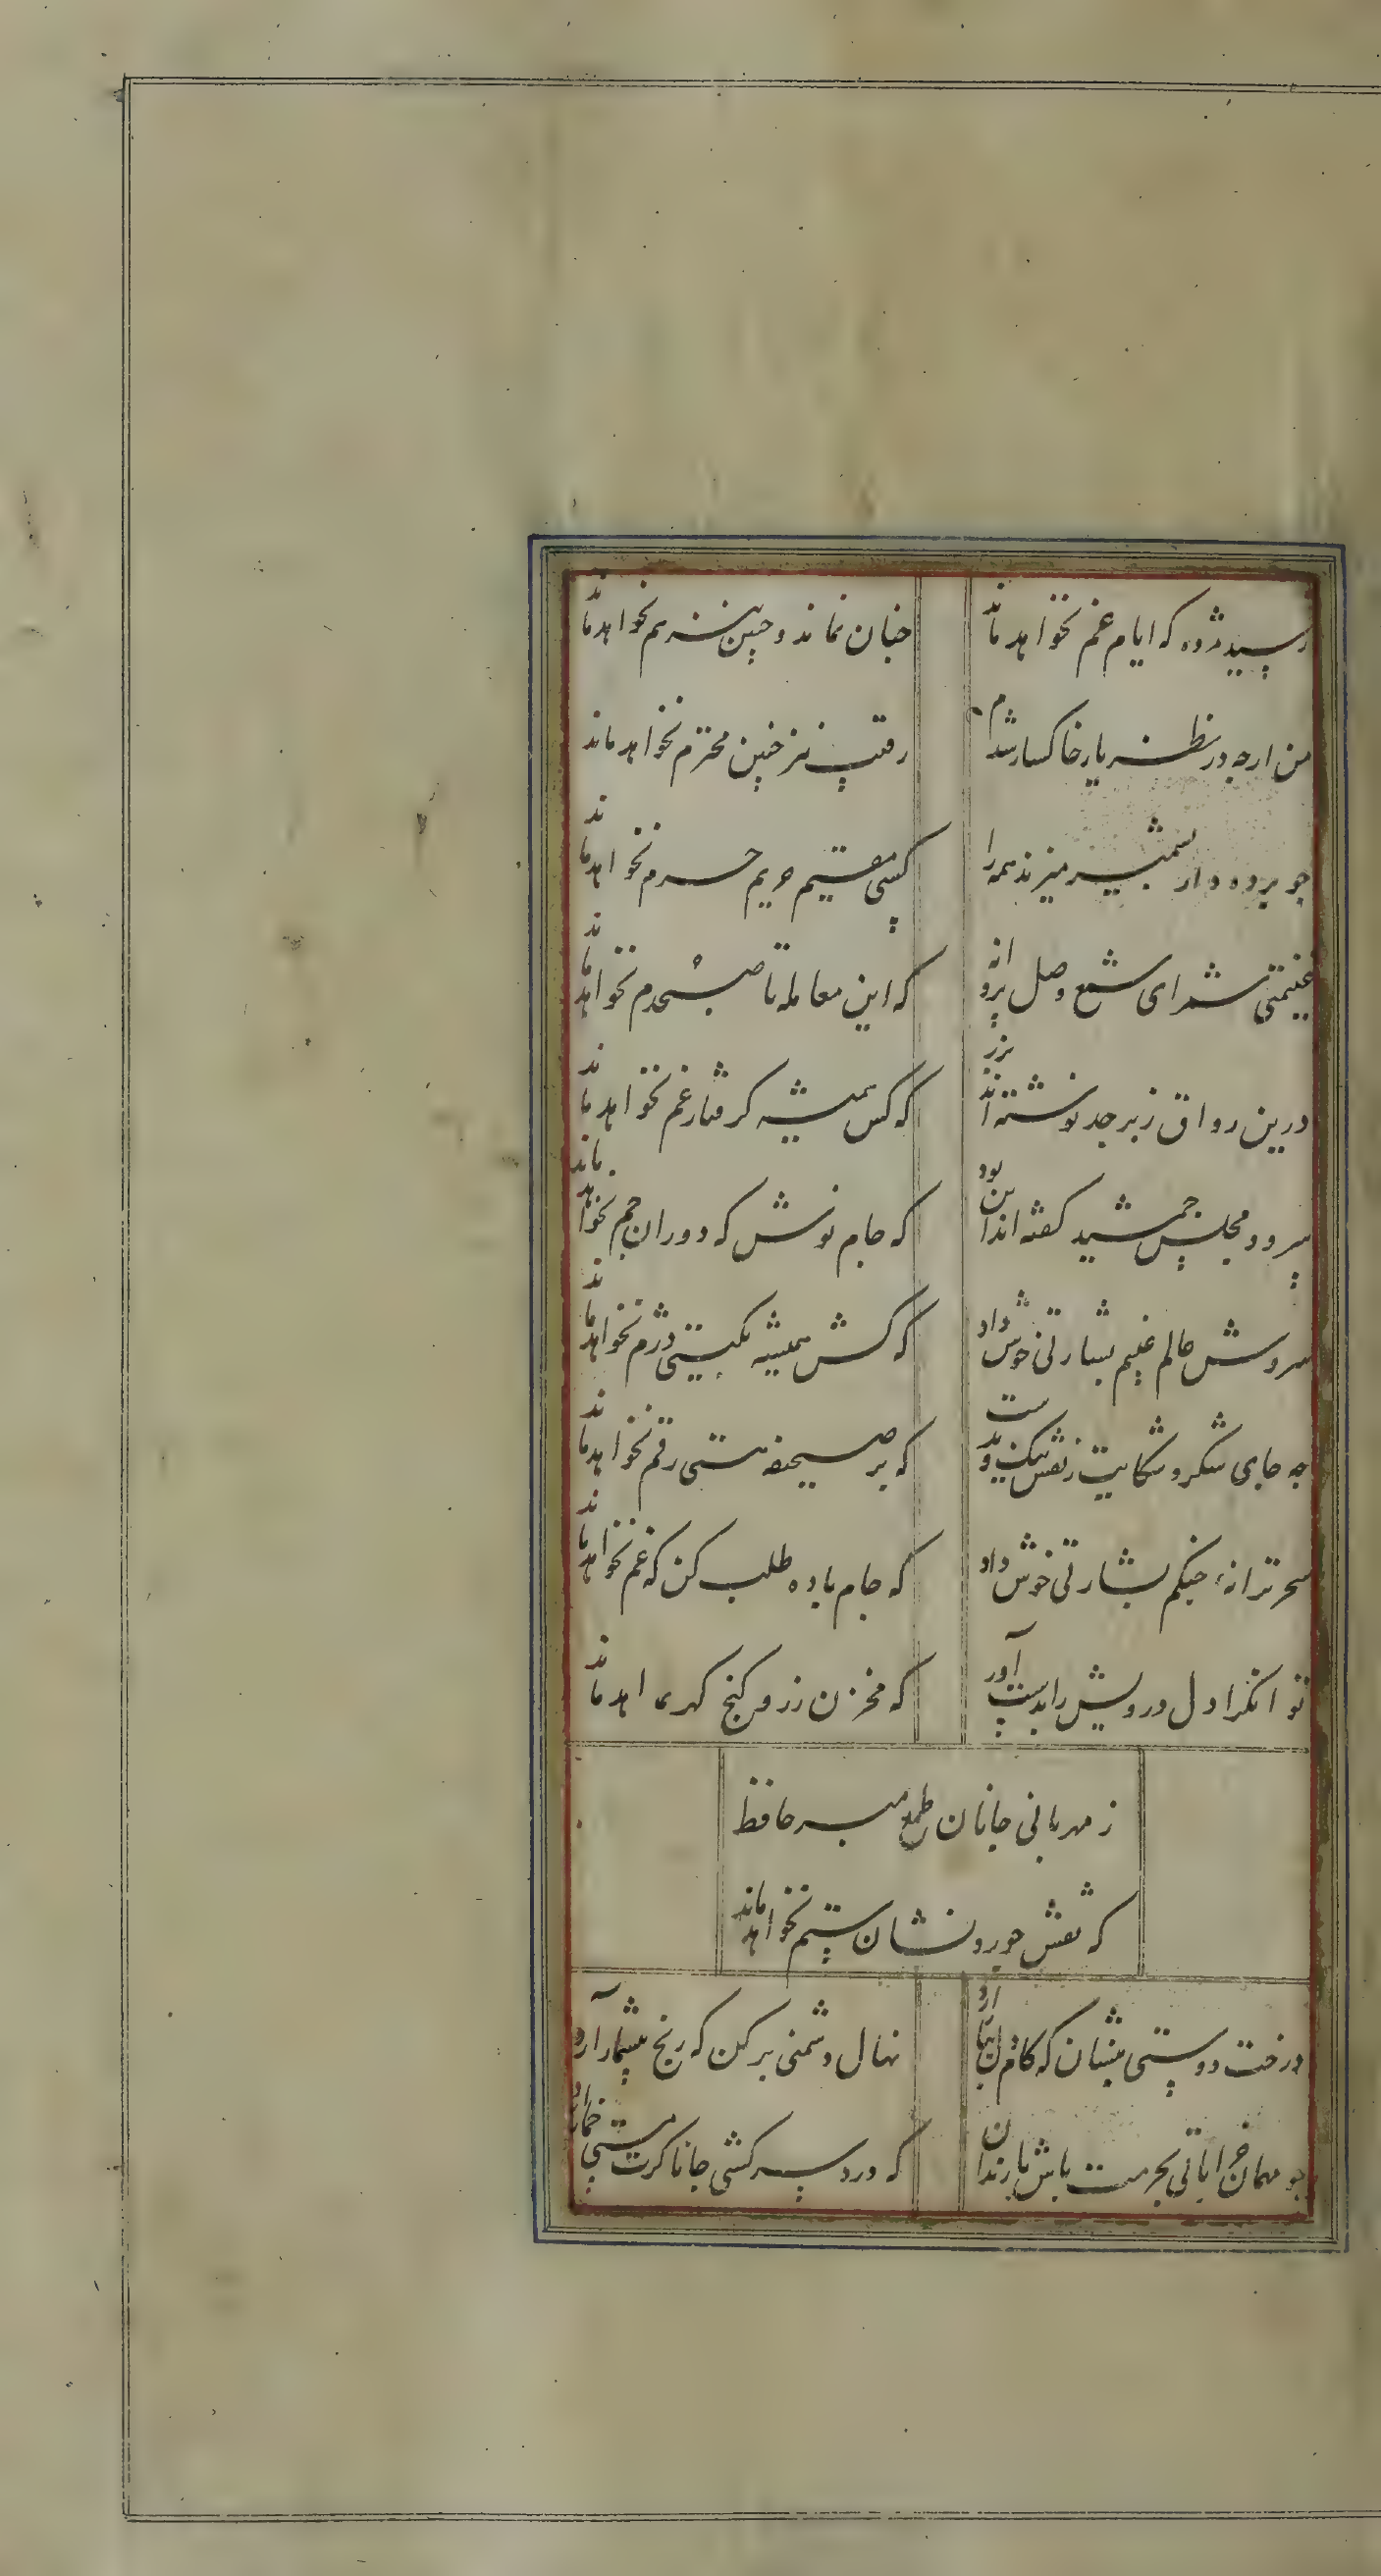 رسید مژده که ایام غم نخواهد ماند
چنان نماند و چنین نیز هم نخواهد ماند
من ارچه در نظر یار خاکسار شدم
رقیب نیز چنین محترم نخواهد ماند
چو پرده دار بشمشیر میزند همه را
کسی مقیم حریم حرم نخواهد ماند
غنیمتی شمر ای شمع وصل پروانه
که این معامله تا صبحدم نخواهد ماند
درین رواق زبرجد نوشته اند بزر
که کس همیشه گرفتار غم نخواهد ماند
سرود مجلس جمشید گفته اند این بود
که جام نوش که دوران جم نخواهد ماند
سروش عالم غیبم بشارتی خوش داد
که کس همیشه بگیتی دژم نخواهد ماند
چه جای شکر و شکایت ز نقش نیک و بدست
که بر صحیفه هستی رقم نخواهد ماند
سحر ترانهٔ چنگم بشارتی خوش داد
که جام باده طلب کن که غم نخواهد ماند
توانگرا دل درویش را بدست آور
که مخزن زر و گنج گهر نخواهد ماند
ز مهربانی جانان طمع مبر حافظ
که نقش جور و نشان ستم نخواهد ماند
درخت دوستی بنشان که کام دل ببار آرد
نهال دشمنی برکن که رنج بیشمار آرد
چو مهمان خراباتی بحرمت باش با رندان
که درد سر کشی جانا گرت مستی خمار آرد